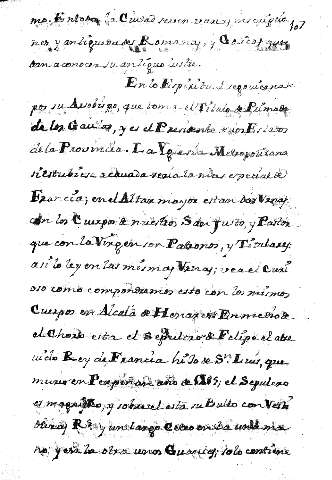 107
mo. En toda la Ciudad se ven varias inscripcio
nes y antiguedades Romanas, y Goticas, que
dan a conocer su antiguo lustre.
En lo Espiritual se govierna
por su Arzobispo, que toma el Titulo de Primado
de los Gaulas, y es el Presidente de los Estados
de la Provincia. La Yglesia Metropolitana
si estubiese acavada seria la mas especial de
Francia; en el Altar mayor estan dos Urnas
con los Cuerpos de nuestros San Justo, y Pastor
que con la Virgen son Patronos, y Titulares
asi lo ley en las mismas Urnas; vea el Curi
oso como compondremos esto con los mismos
Cuerpos en Alcala de Henares. En medio de
el Choro esta el Sepulcro de Felipe el atre
vido Rey de Francia hijo de Sn. Luis, que
murio en Perpiñan año de 1285; el Sepulcro
es magnifico, y sobre el esta su Bulto con Vesti
duras Rs. y un largo Cetro en la una ma
no; y en la otra unos Guantes; solo contiene